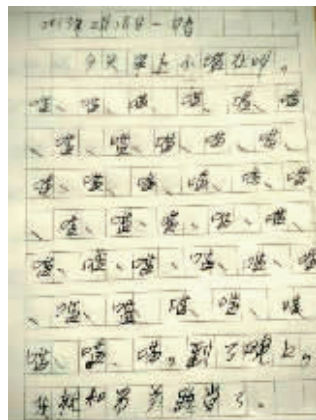 2013年2月18日 一 晴
今天早上小喵在叫。
喵、喵、喵、喵、喵、喵
、喵、喵、喵、喵、喵、
喵、喵、喵、喵、喵、喵
、喵、喵、喵、喵、喵、
喵、喵、喵、喵、喵、喵
、喵、喵、喵、喵、喵
喵、喵、喵。了很久。
和 了。